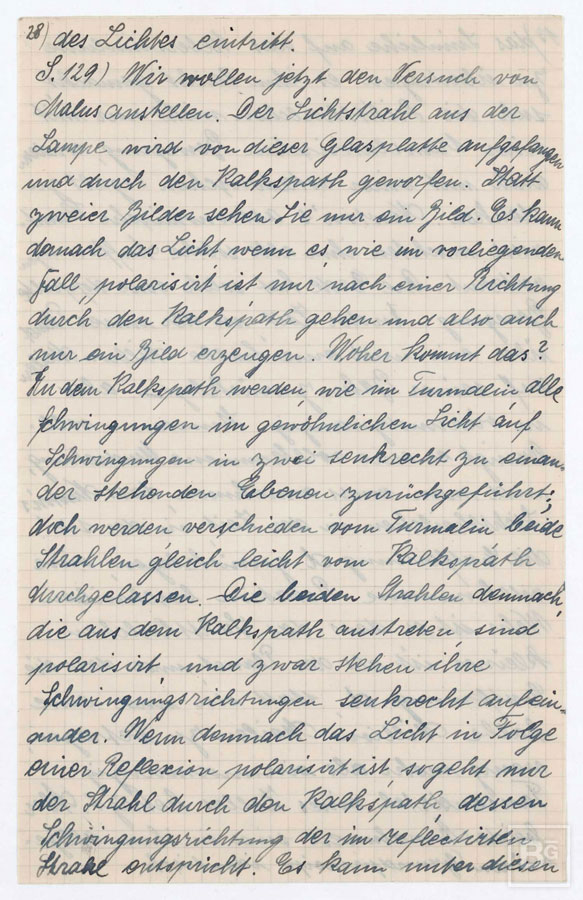 28) des Lichtes eintritt.
S. 129) Wir wollen jetzt den Versuch von
Malus anstellen. Der Lichtstrahl aus der
Lampe wird von dieser Glasplatte aufgefangen
und durch den Kalkspath geworfen. Statt
zweier Bilder sehen Sie nur ein Bild. Es kann
darnach das Licht wenn es wie im vorliegenden
Fall polarisirt ist nur nach einer Richtung
durch den Kalkspath gehen und also auch
nur ein Bild erzeugen. Woher kommt das?
In dem Kalkspath werden wie im Turmalin alle
Schwingungen im gewöhnlichen Licht auf
Schwingungen in zwei senkrecht zu einan-
der stehenden Ebenen zurückgeführt;
doch werden verschieden vom Turmalin beide
Strahlen gleich leicht vom Kalkspath
durchgelassen. Die beiden Strahlen demnach,
die aus dem Kalkspath austreten, sind
polarisirt und zwar stehen ihre
Schwingungsrichtungen senkrecht aufein-
ander. Wenn demnach das Licht in Folge
einer Reflexion polarisirt ist so geht nur
der Strahl durch den Kalkspath, dessen
Schwingungsrichtung der im reflectirten
Strahl entspricht. Es kann unter diesen